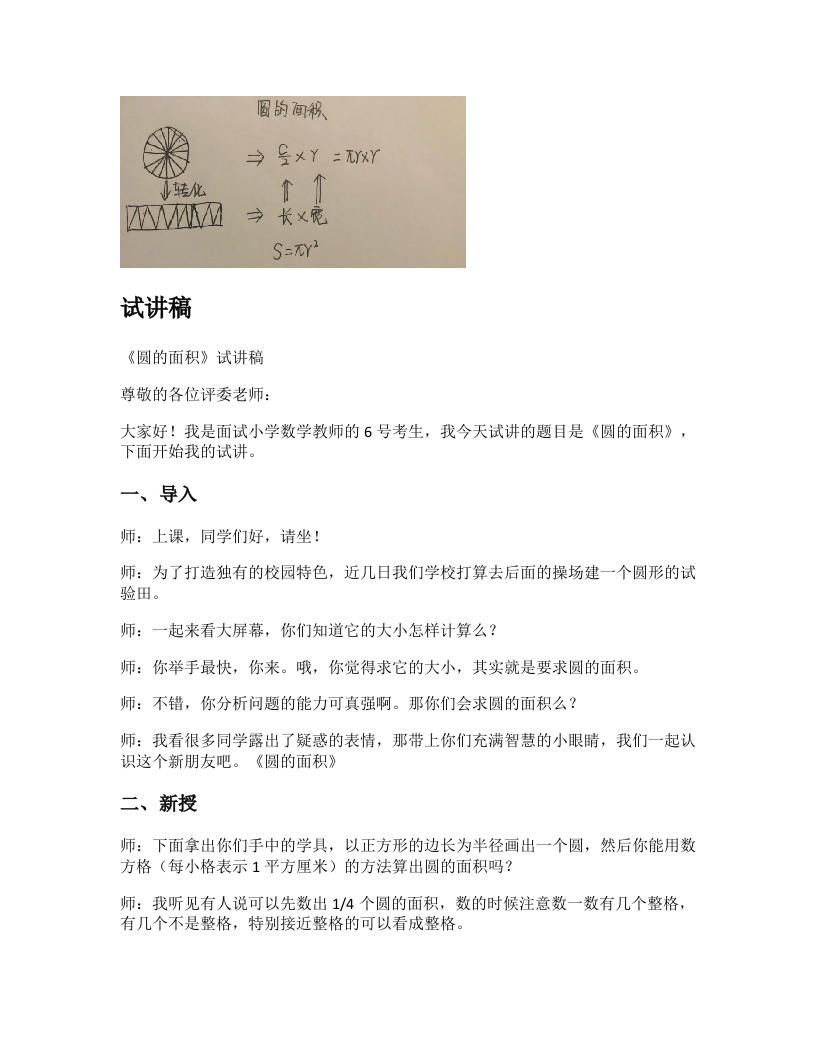 圆的面积
⇒ C/2 × r = πr×r
转化
⇒ 长×宽
S=πr²
试讲稿
《圆的面积》试讲稿
尊敬的各位评委老师：
大家好！我是面试小学数学教师的 6 号考生，我今天试讲的题目是《圆的面积》，
下面开始我的试讲。
一、导入
师：上课，同学们好，请坐！
师：为了打造独有的校园特色，近几日我们学校打算去后面的操场建一个圆形的试
验田。
师：一起来看大屏幕，你们知道它的大小怎样计算么？
师：你举手最快，你来。哦，你觉得求它的大小，其实就是要求圆的面积。
师：不错，你分析问题的能力可真强啊。那你们会求圆的面积么？
师：我看很多同学露出了疑惑的表情，那带上你们充满智慧的小眼睛，我们一起认
识这个新朋友吧。《圆的面积》
二、新授
师：下面拿出你们手中的学具，以正方形的边长为半径画出一个圆，然后你能用数
方格（每小格表示 1 平方厘米）的方法算出圆的面积吗？
师：我听见有人说可以先数出 1/4 个圆的面积，数的时候注意数一数有几个整格，
有几个不是整格，特别接近整格的可以看成整格。